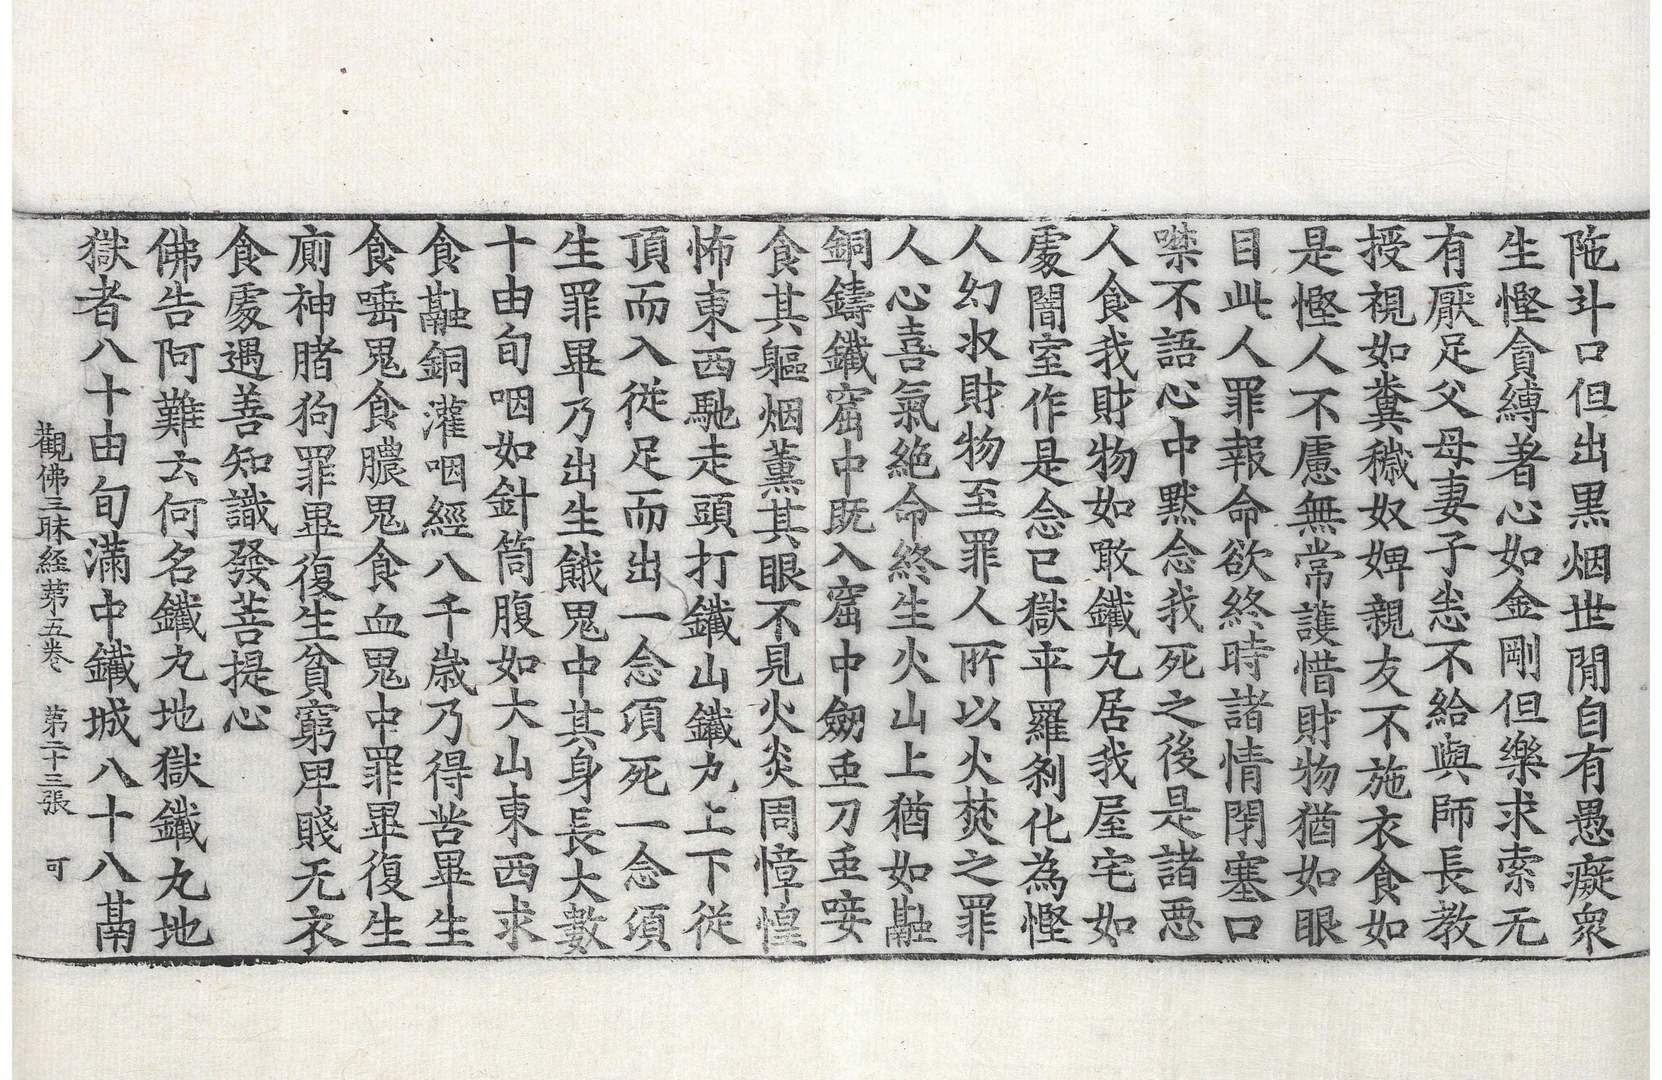 陁斗口但出黒烟世閒自有愚癡衆
生慳貪縛著心如金剛但樂求索无
有厭足父母妻子恙不給與師長教
授視如糞穢奴婢親友不施衣食如
是慳人不慮無常護惜財物猶如眼
目此人罪報命欲終時諸情閉塞口
噤不語心中黙念我死之後是諸惡
人食我財物如噉鐵丸居我屋宅如
處闇室作是念已獄卒羅剎化為慳
人幻収財物至罪人所以火焚之罪
人心喜氣絶命終生火山上猶如融
銅鑄鐵窟中既入窟中劒虫刀虫唼
食其軀烟薰其眼不見火炎周慞惶
怖東西馳走頭打鐵山鐵丸上下從
頂而入從足而出一念須死一念須
生罪畢乃出生餓鬼中其身長大數
十由旬咽如針筒腹如大山東西求
食融銅灌咽經八千歲乃得苦畢生
食唾鬼食膿鬼食血鬼中罪畢復生
廁神賭狗罪畢復生貧窮卑賤无衣
食處遇善知識發菩提心
佛告阿難云何名鐵丸地獄鐵丸地
獄者八十由旬滿中鐵城八十八鬲
觀佛三昧経苐五卷 第二十三張 可